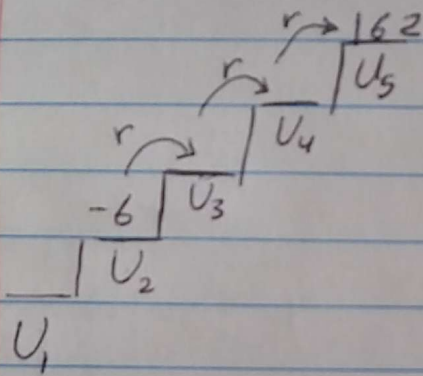 r 162
r U5
r U4
-6 U3
U2
U1